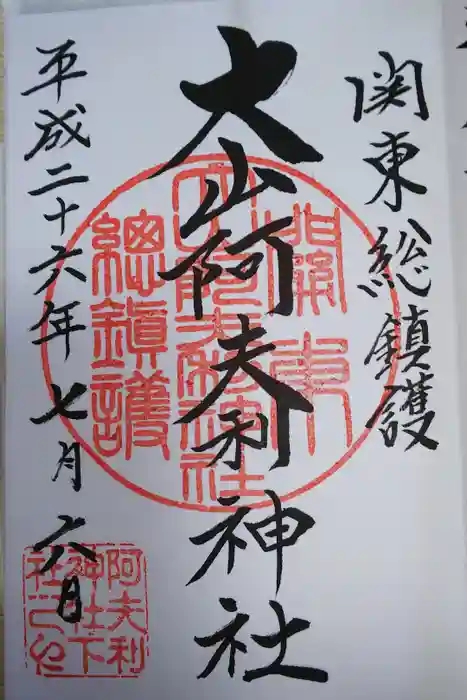 関東総鎮護
大山阿夫利神社
平成二十六年七月六日
關東
大山阿夫利神社
總鎮護
阿夫利
神社下
社之印